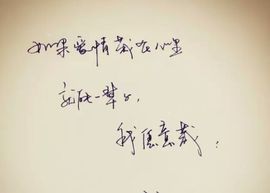 如果爱情藏在心里
就能一辈子,
我愿意藏,